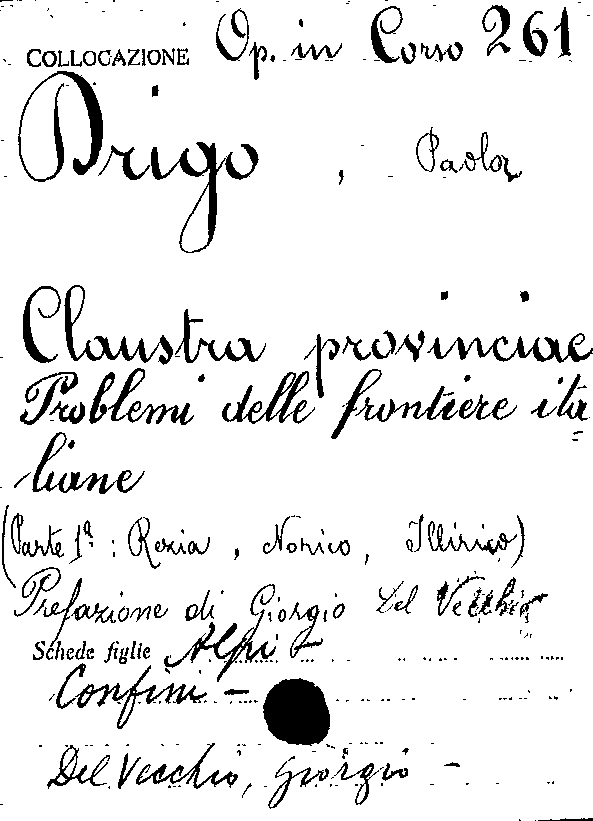 COLLOCAZIONE Op. in Corso 261
Drigo, Paola
Claustra provinciae
Problemi delle frontiere ita
liane
(Parte 1ª: Rezia, Norico, Illirico)
Prefazione di Giorgio Del Vecchio
Schede figlie Alpi -
Confini -
Del Vecchio, Giorgio -